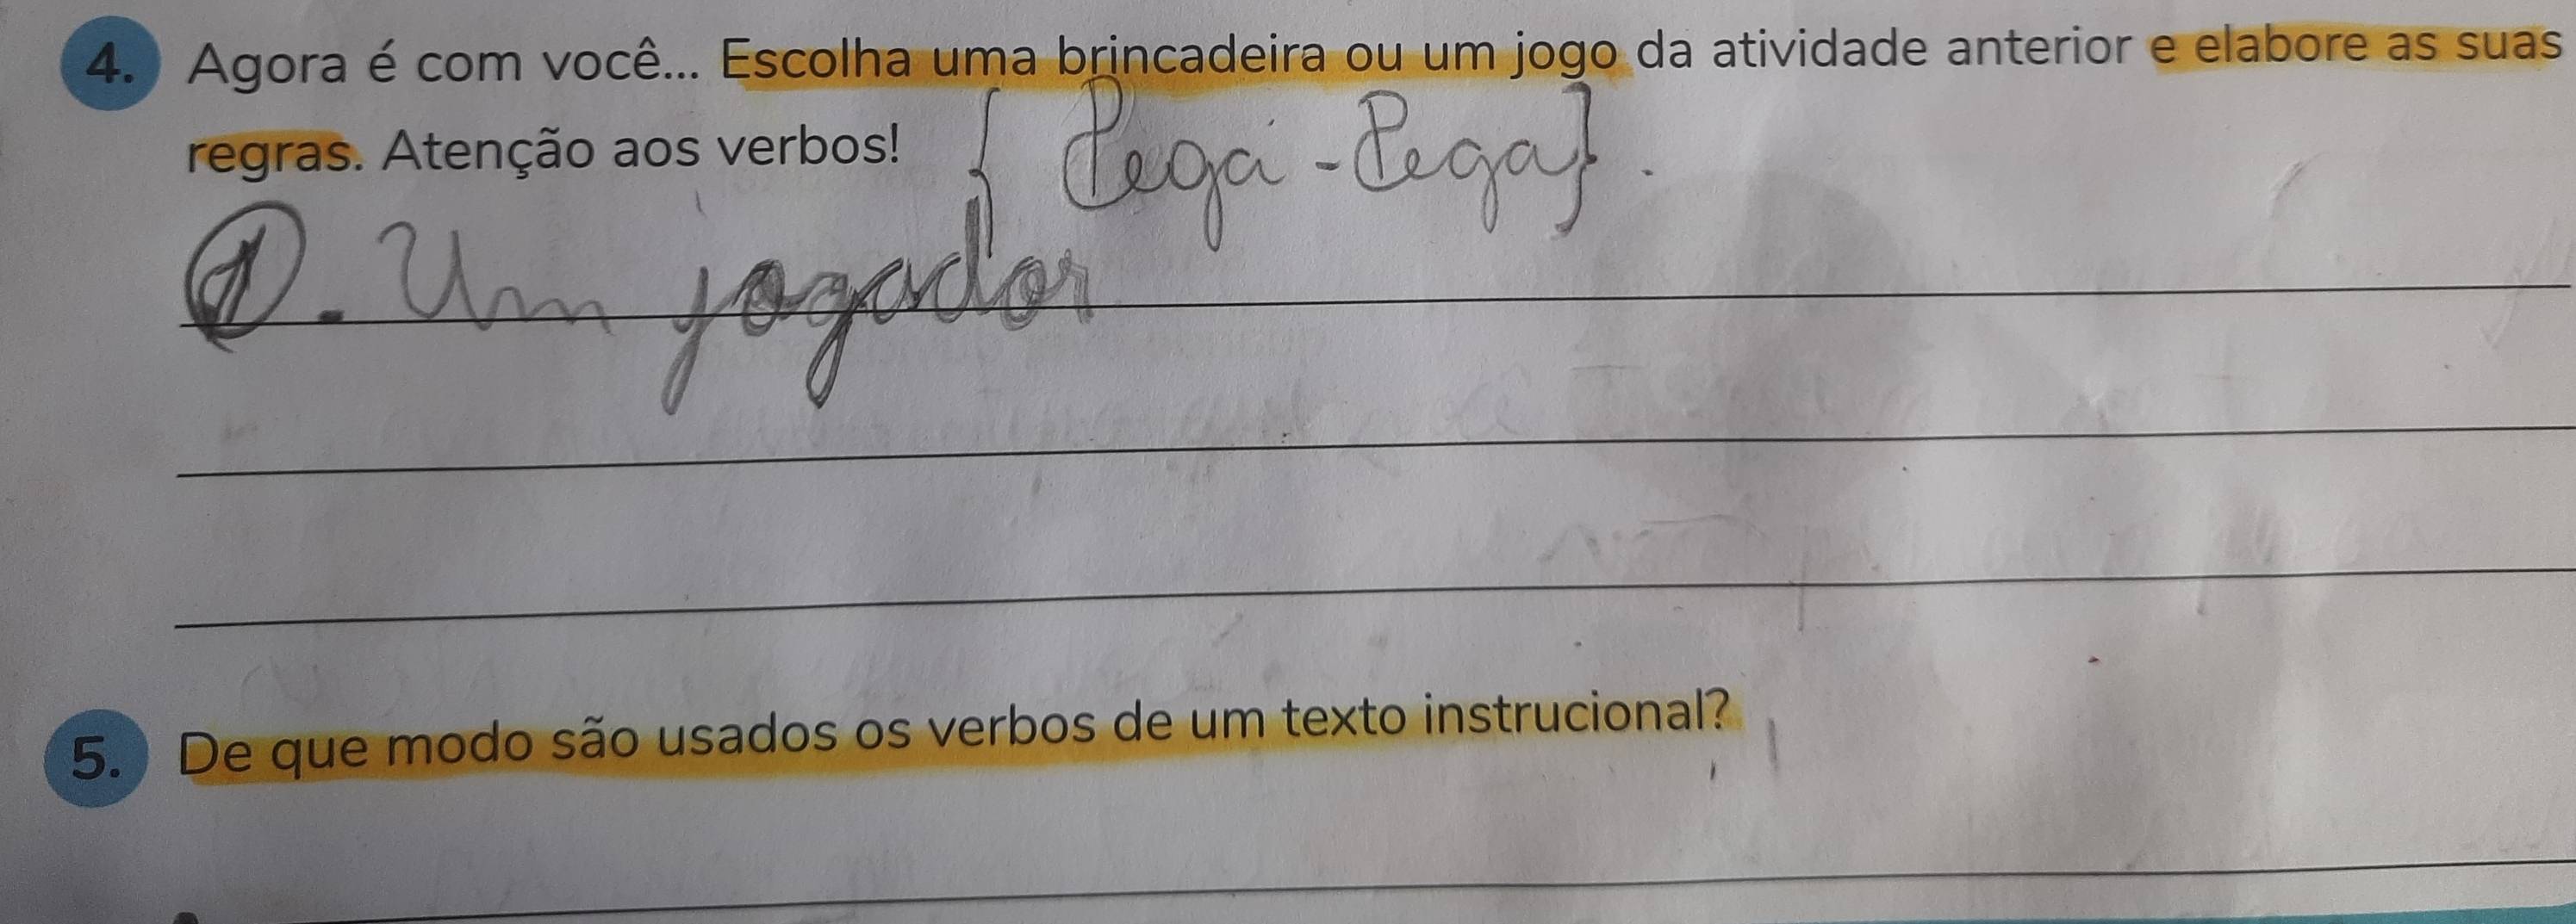 4. Agora é com você... Escolha uma brincadeira ou um jogo da atividade anterior e elabore as suas
regras. Atenção aos verbos! { Pega-Pega}.
1. Um jogador
5. De que modo são usados os verbos de um texto instrucional?